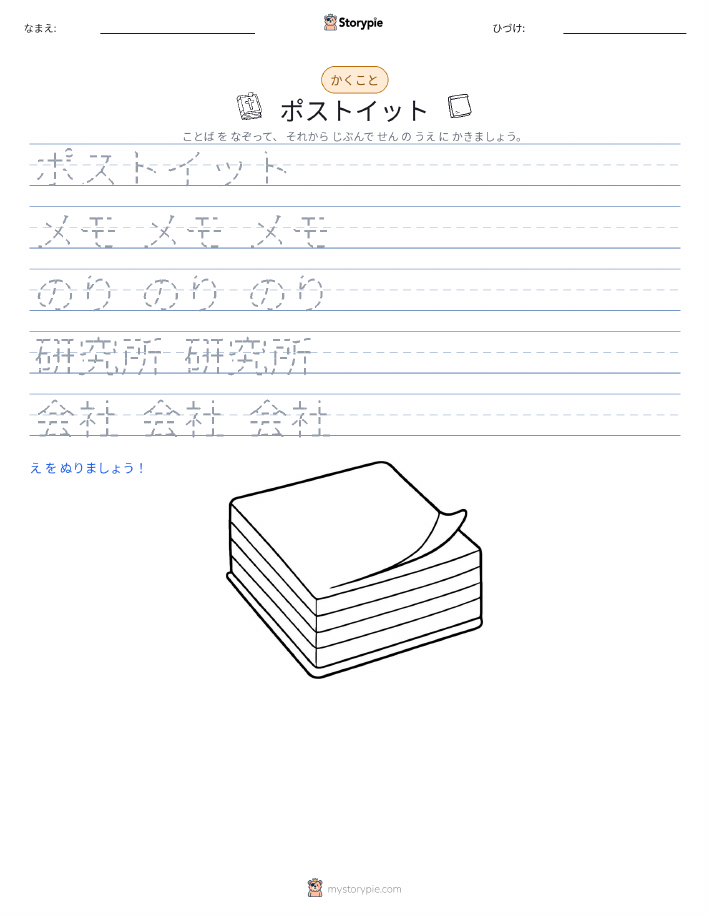 なまえ:
Storypie
ひづけ:
かくこと
ポストイット
ことば を なぞって、 それから じぶんで せん の うえ に かきましょう。
ポストイット
メモ メモ メモ
のり のり のり
研究所 研究所
会社 会社 会社
え を ぬりましょう！
mystorypie.com